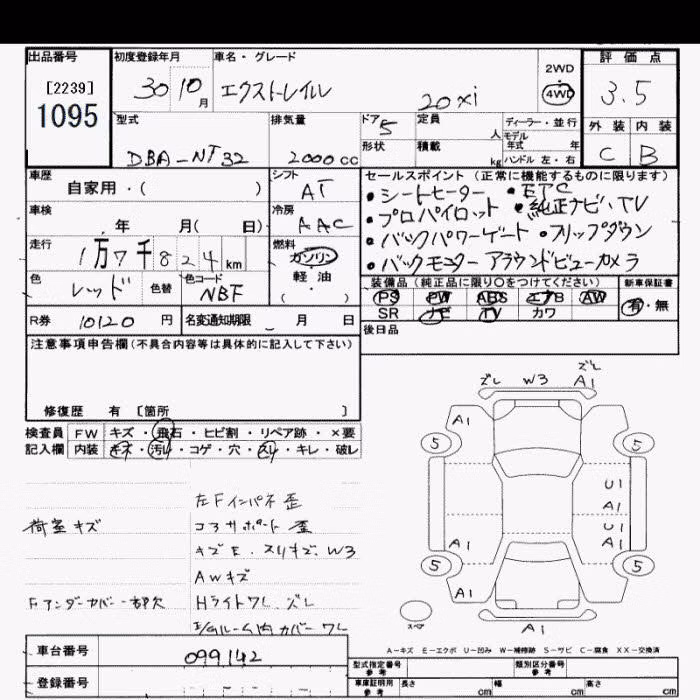 出品番号 初度登録年月 車名・グレード 2WD 評価点
[2239] 30 10月 エクストレイル 20xi 4WD 3.5
1095
型式 排気量 ドア 5 定員 人 ディーラー・並行 外装 内装
DBA-NT32 2000cc 形状 積載 kg モデル年式 年 C B
ハンドル 左・右
車歴 シフト セールスポイント (正常に機能するものに限ります)
自家用・( ) AT ・シートヒーター ・ETC
車検 冷房 ・プロパイロット ・純正ナビ、TV
年 月( 日) AAC ・バックパワーゲート ・フリップダウン
走行 燃料 ・バックモニター アラウンドビューカメラ
1万7千824km ガソリン
軽・油
( )
色 色替 色コード 装備品 (純正品に限り○をつけてください) 新車保証書
レッド NBF PS PW ABS エアB AW 有・無
SR ナビ TV カワ
R券 10120円 名変通知期限 月 日 後日品
注意事項申告欄(不具合内容等は具体的に記入して下さい)
修復歴 有 [箇所 ]
検査員 FW キズ・飛石・ヒビ割・リペア跡・×要
記入欄 内装 キズ・汚レ・コゲ・穴・スレ・キレ・破レ
ズレ W3 ズレ A1
A1
5 5
U1
A1
U1
A1 A1
5 5
A1 A1
スペア
A1
左Fインパネ 歪
荷室キズ コアサポート 歪
キズE.スリキズ.W3
AWキズ
Fアンダーカバー一部欠 Hライトワレ.ズレ
E/gルーム内カバーワレ
A-キズ E-エクボ U-凹み W-補修跡 S-サビ C-腐食 XX-交換済
車台番号 099142
登録番号
型式指定番号 参考 類別区分番号 参考
車庫証明用 参考 長さ cm 幅 cm 高さ cm